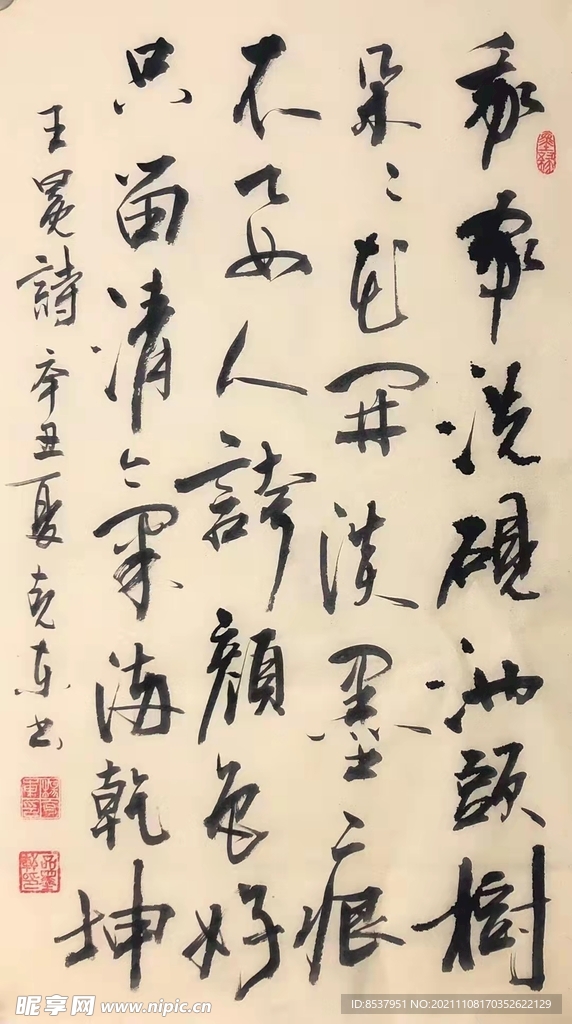 我家洗硯池頭樹
朵々花開淡墨痕
不要人誇顏色好
只留清氣滿乾坤
王冕詩 辛丑夏克东书
昵享网 www.nipic.cn
ID:8537951 NO:20211108170352622129